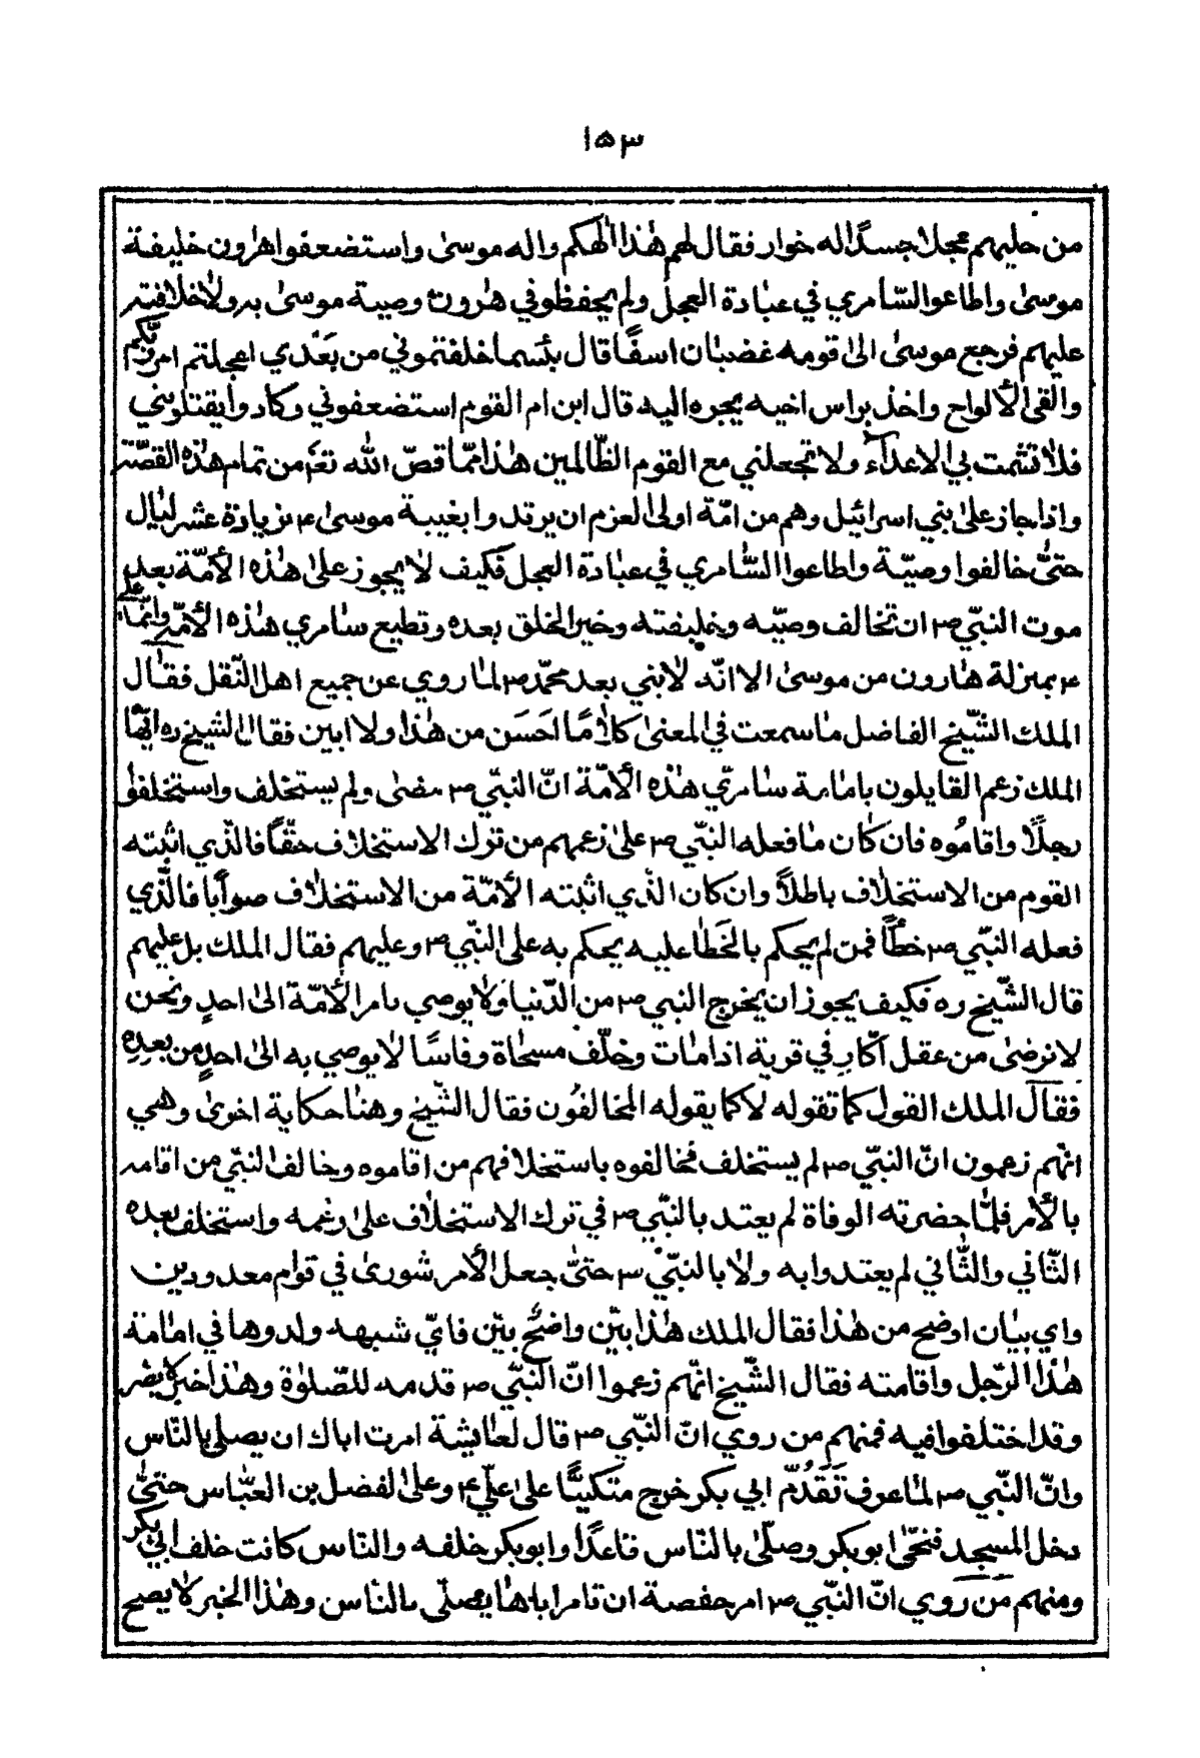 ١٥٣
من حليهم عجلا جسدًا له خوار فقال لهم هٰذا الٰهكم واله موسىٰ واستضعفوا هٰرون خليفة
موسىٰ واطاعوا السّامري في عبادة العجل ولم يحفظوا في هٰرون وصية موسىٰ به ولا خلافته
عليهم فرجع موسىٰ الىٰ قومه غضبان اسفًا قال بئسما خلفتموني من بَعْدي اعجلتم امر ربّكم
والقى الألواح واخذ براس اخيه يجره اليه قال ابن ام القوم استضعفوني وكادوا يقتلونني
فلا تشمت بي الاعدآء ولا تجعلني مع القوم الظّالمين هٰذا ممّا قصّ الله تعٰ من تمام هٰذه القصّة
واذا جاز علىٰ بني اسرائيل وهم من امّة اولى العزم ان يرتدوا بغيبة موسىٰ ع بزيادة عشر ليٰال
حتىّٰ خالفوا وصيّة واطاعوا السّامري في عبادة العجل فكيف لا يجوز علىٰ هٰذه الأمّة بعد
موت النبّي ص ان تخالف وصيّه وخليفته وخير الخلق بعده وتطيع سامري هٰذه الأمّة وانّما علي
ع بمنزلة هٰارون من موسىٰ الا انّه لا نبي بعد محمّد ص لما روي عن جميع اهل النّقل فقال
الملك الشّيخ الفاضل ما سمعت في المعنىٰ كلامًا احَسَن من هٰذا ولا ابين فقال الشيخ ره ايّها
الملك زعم القايلون بامامة سامريّ هٰذه الأمّة انّ النبّي ص مضىٰ ولم يستخلف واستخلفوا
رجلًا واقاموه فان كان ما فعله النبّي ص علىٰ زعمهم من ترك الاستخلاف حقًّا فالّذي اثبته
القوم من الاستخلاف باطلاً وان كان الّذي اثبته الأمّة من الاستخلاف صوابًا فالّذي
فعله النبّي ص خطأً فمن لم يحكم بالخَطأ عليه يحكم به على النبّي ص وعليهم فقال الملك بل عليهم
قال الشّيخ ره فكيف يجوز ان يخرج النبي ص من الدّنيا ولا يوصي بامر الأمّة الىٰ احدٍ ونحن
لا نرضىٰ من عقل اكّارٍ في قرية اذا مات وخلّف مسحاة وفاسًا لا يوصي به الىٰ احدٍ من بعدِهِ
فقال الملك القول كما تقوله لا كما يقوله المخالفُون فقال الشّيخ وهنا حكاية اخرىٰ وهي
انّهم زعمون انّ النبّي ص لم يستخلف فخالفوه باستخلافهم من اقاموه وخالف النبّي من اقامه
بالأمر فلمّا حضرته الوفاة لم يعتد بالنبّي ص في ترك الاستخلاف علىٰ زعمه واستخلف بعده
الثّاني والثّاني لم يعتد وا به ولا بالنبّي ص حتىّٰ جعل الأمر شورىٰ في قوام معدودين
واي بيان اوضح من هٰذا فقال الملك هٰذا بيّن واضحٌ بيّن فايّ شبهه ولدوها في امامة
هٰذا الرّجل واقامته فقال الشّيخ انّهم زعموا انّ النبّي ص قدمه للصّلوٰة وهٰذا خبر لا يصّر
وقد اختلفوا فيه فمنهم من روي انّ النبّي ص قال لعايشة امرت اباك ان يصلي بالنّاس
وانّ النبّي ص لما عرف تَقَدُمّ ابي بكر خرج متكيًّا علىٰ عليّ ع وعلى الفضل بن العبّاس حتىّٰ
دخل المسجد فنحّىٰ ابو بكر وصلّىٰ بالنّاس قاعدًا وابو بكر خلفه والنّاس كانت خلف ابي بكر
ومنهم مَن روي انّ النبّي ص امر حفصة ان تامر اباها يصلّي بالنّاس وهٰذا الخبر لا يصح